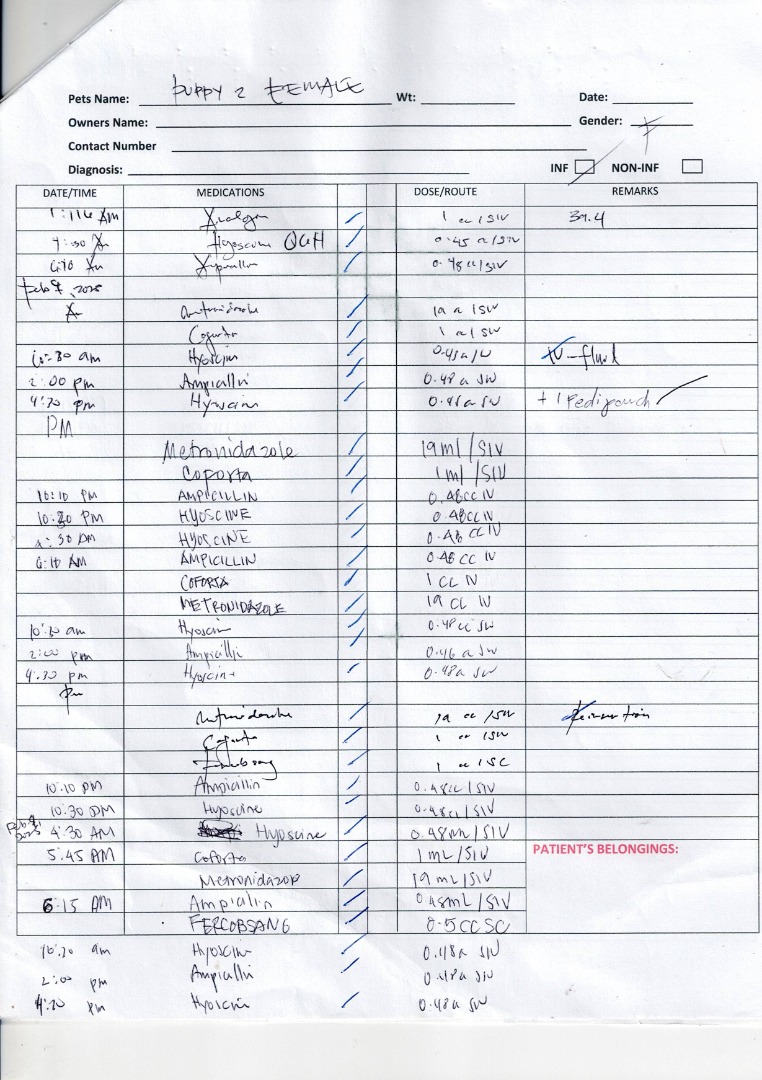 Pets Name: PUPPY 2 FEMALE Wt: Date:
Owners Name: Gender: F
Contact Number
Diagnosis: INF NON-INF
DATE/TIME MEDICATIONS DOSE/ROUTE REMARKS
1 cc /SIV 39.4
Hyoscine Q6H 0.45 cc/SIV
0.48 cc/SIV
Feb 7, 2025
1 cc/SIV
10:30 am Hyoscin IV-fluid
2:00 pm Ampicillin 0.48 cc SIV
4:30 pm Hyoscin 0.48 cc SIV + 1 Pedipouch
PM
Metronidazole 19 ml /SIV
Coforta 1 ml /SIV
10:10 PM AMPICILLIN 0.48CC IV
10:30 PM HYOSCINE 0.48CC IV
4:30 AM HYOSCINE 0.48 CC IV
6:10 AM AMPICILLIN 0.48 CC IV
COFORTA 1 CC IV
METRONIDAZOLE 19 CC IV
10:30 am Hyoscin 0.48 cc SIV
2:00 pm Ampicillin 0.46 cc SIV
4:30 pm Hyoscin 0.48 cc SIV
pm
19 cc /SIV
1 cc /SIV
1 cc /SC
10:10 PM Ampicillin 0.48cc /SIV
10:30 PM Hyoscine 0.48cc /SIV
4:30 AM Hyoscine 0.48ml /SIV
5:45 AM Coforta 1 mL /SIV PATIENT'S BELONGINGS:
Metronidazole 19 mL /SIV
6:15 AM Ampicilin 0.48mL /SIV
FERCOBSANG 0.5 CC SC
10:30 am Hyoscin 0.48 cc SIV
2:00 pm Ampicillin 0.48 cc SIV
4:30 pm Hyoscin 0.48 cc SIV